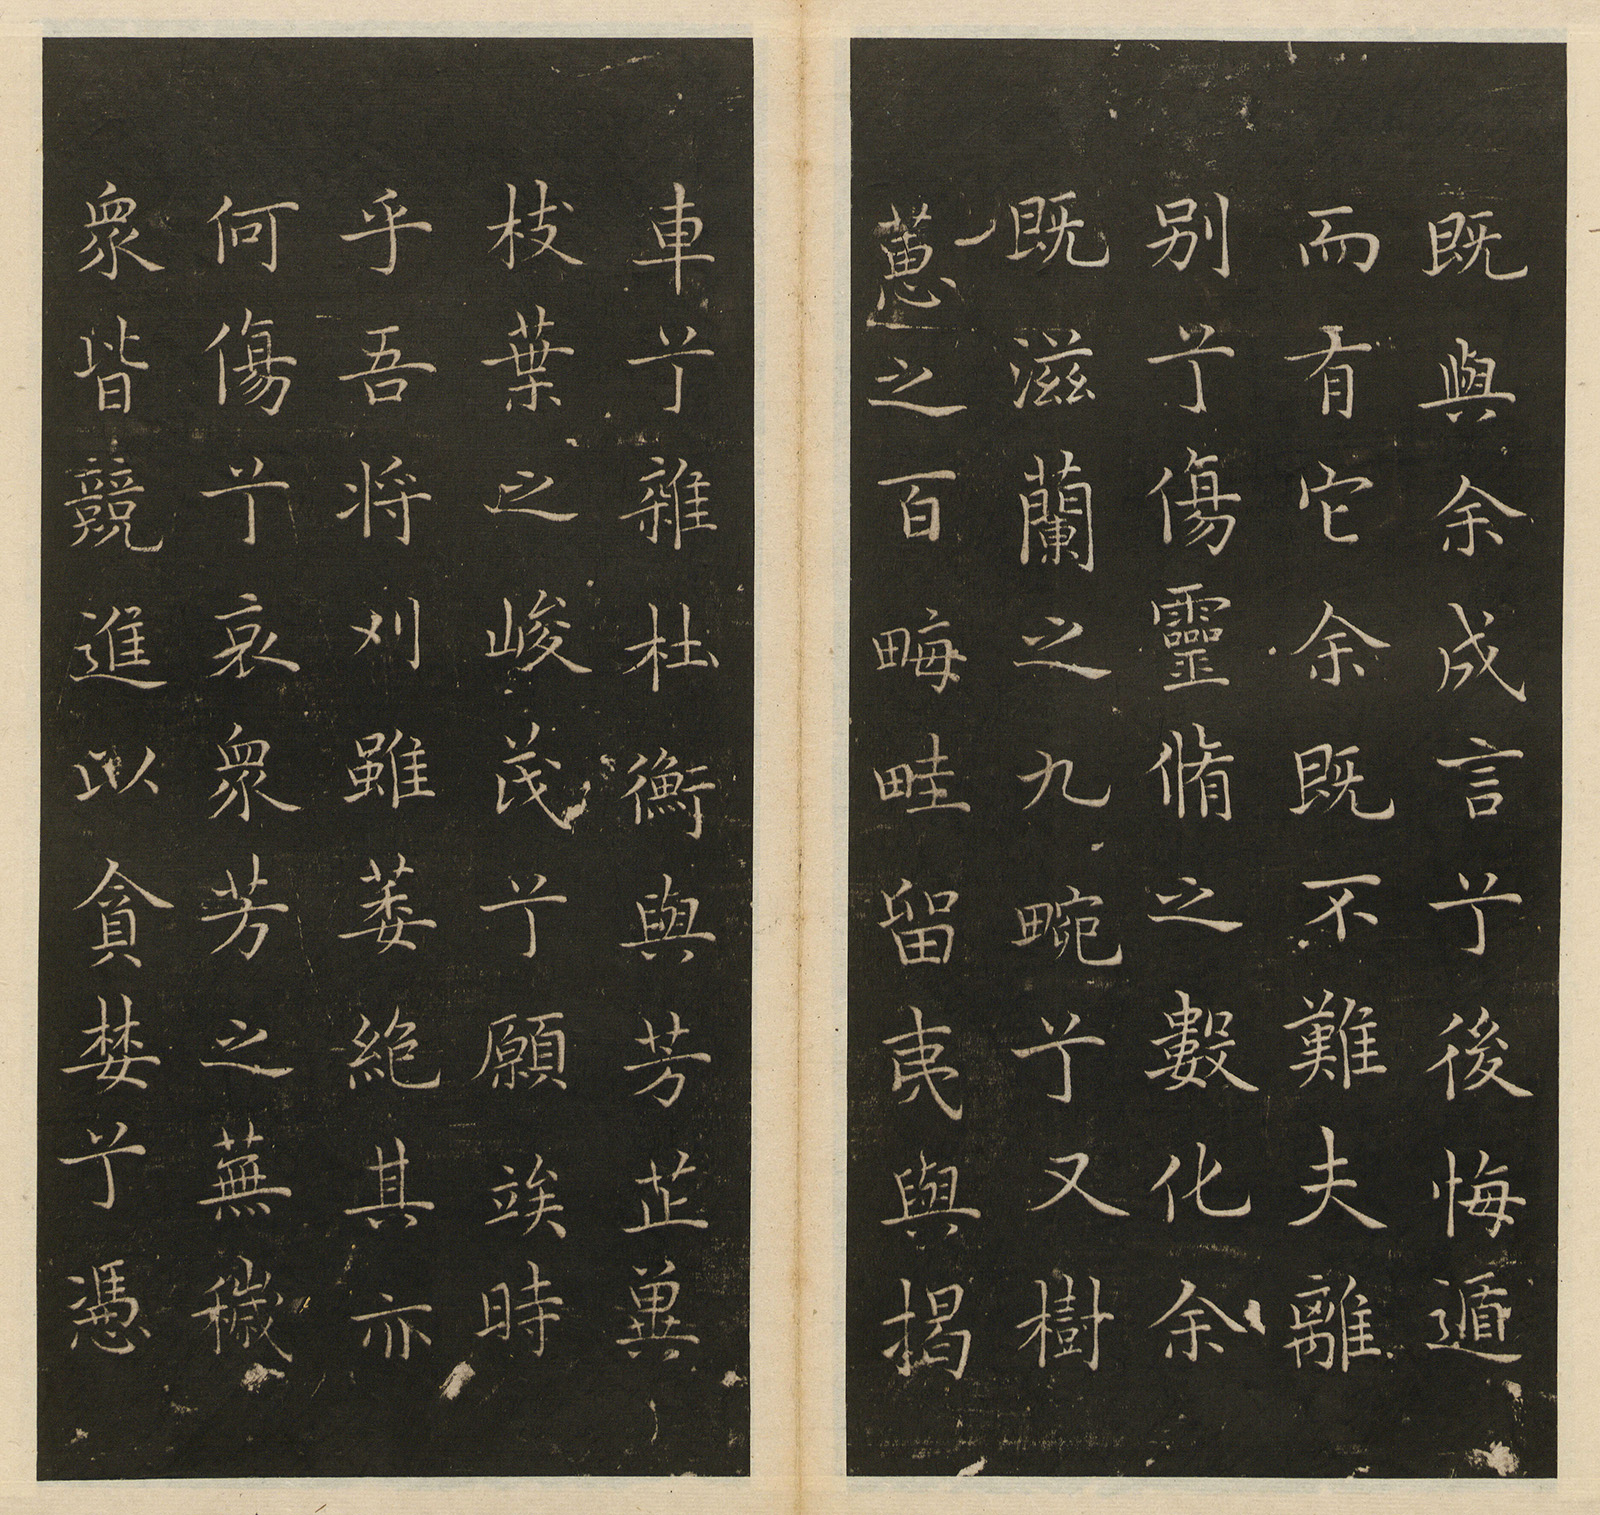 既與余成言兮後悔遁
而有它余既不難夫離
别兮傷靈脩之數化余
既滋蘭之九畹兮又樹
蕙之百畮畦留夷與揭
車兮雜杜衡與芳芷兾
枝葉之峻茂兮願竢時
乎吾将刈雖萎絶其亦
何傷兮哀衆芳之蕪穢
衆皆競進以貪婪兮憑